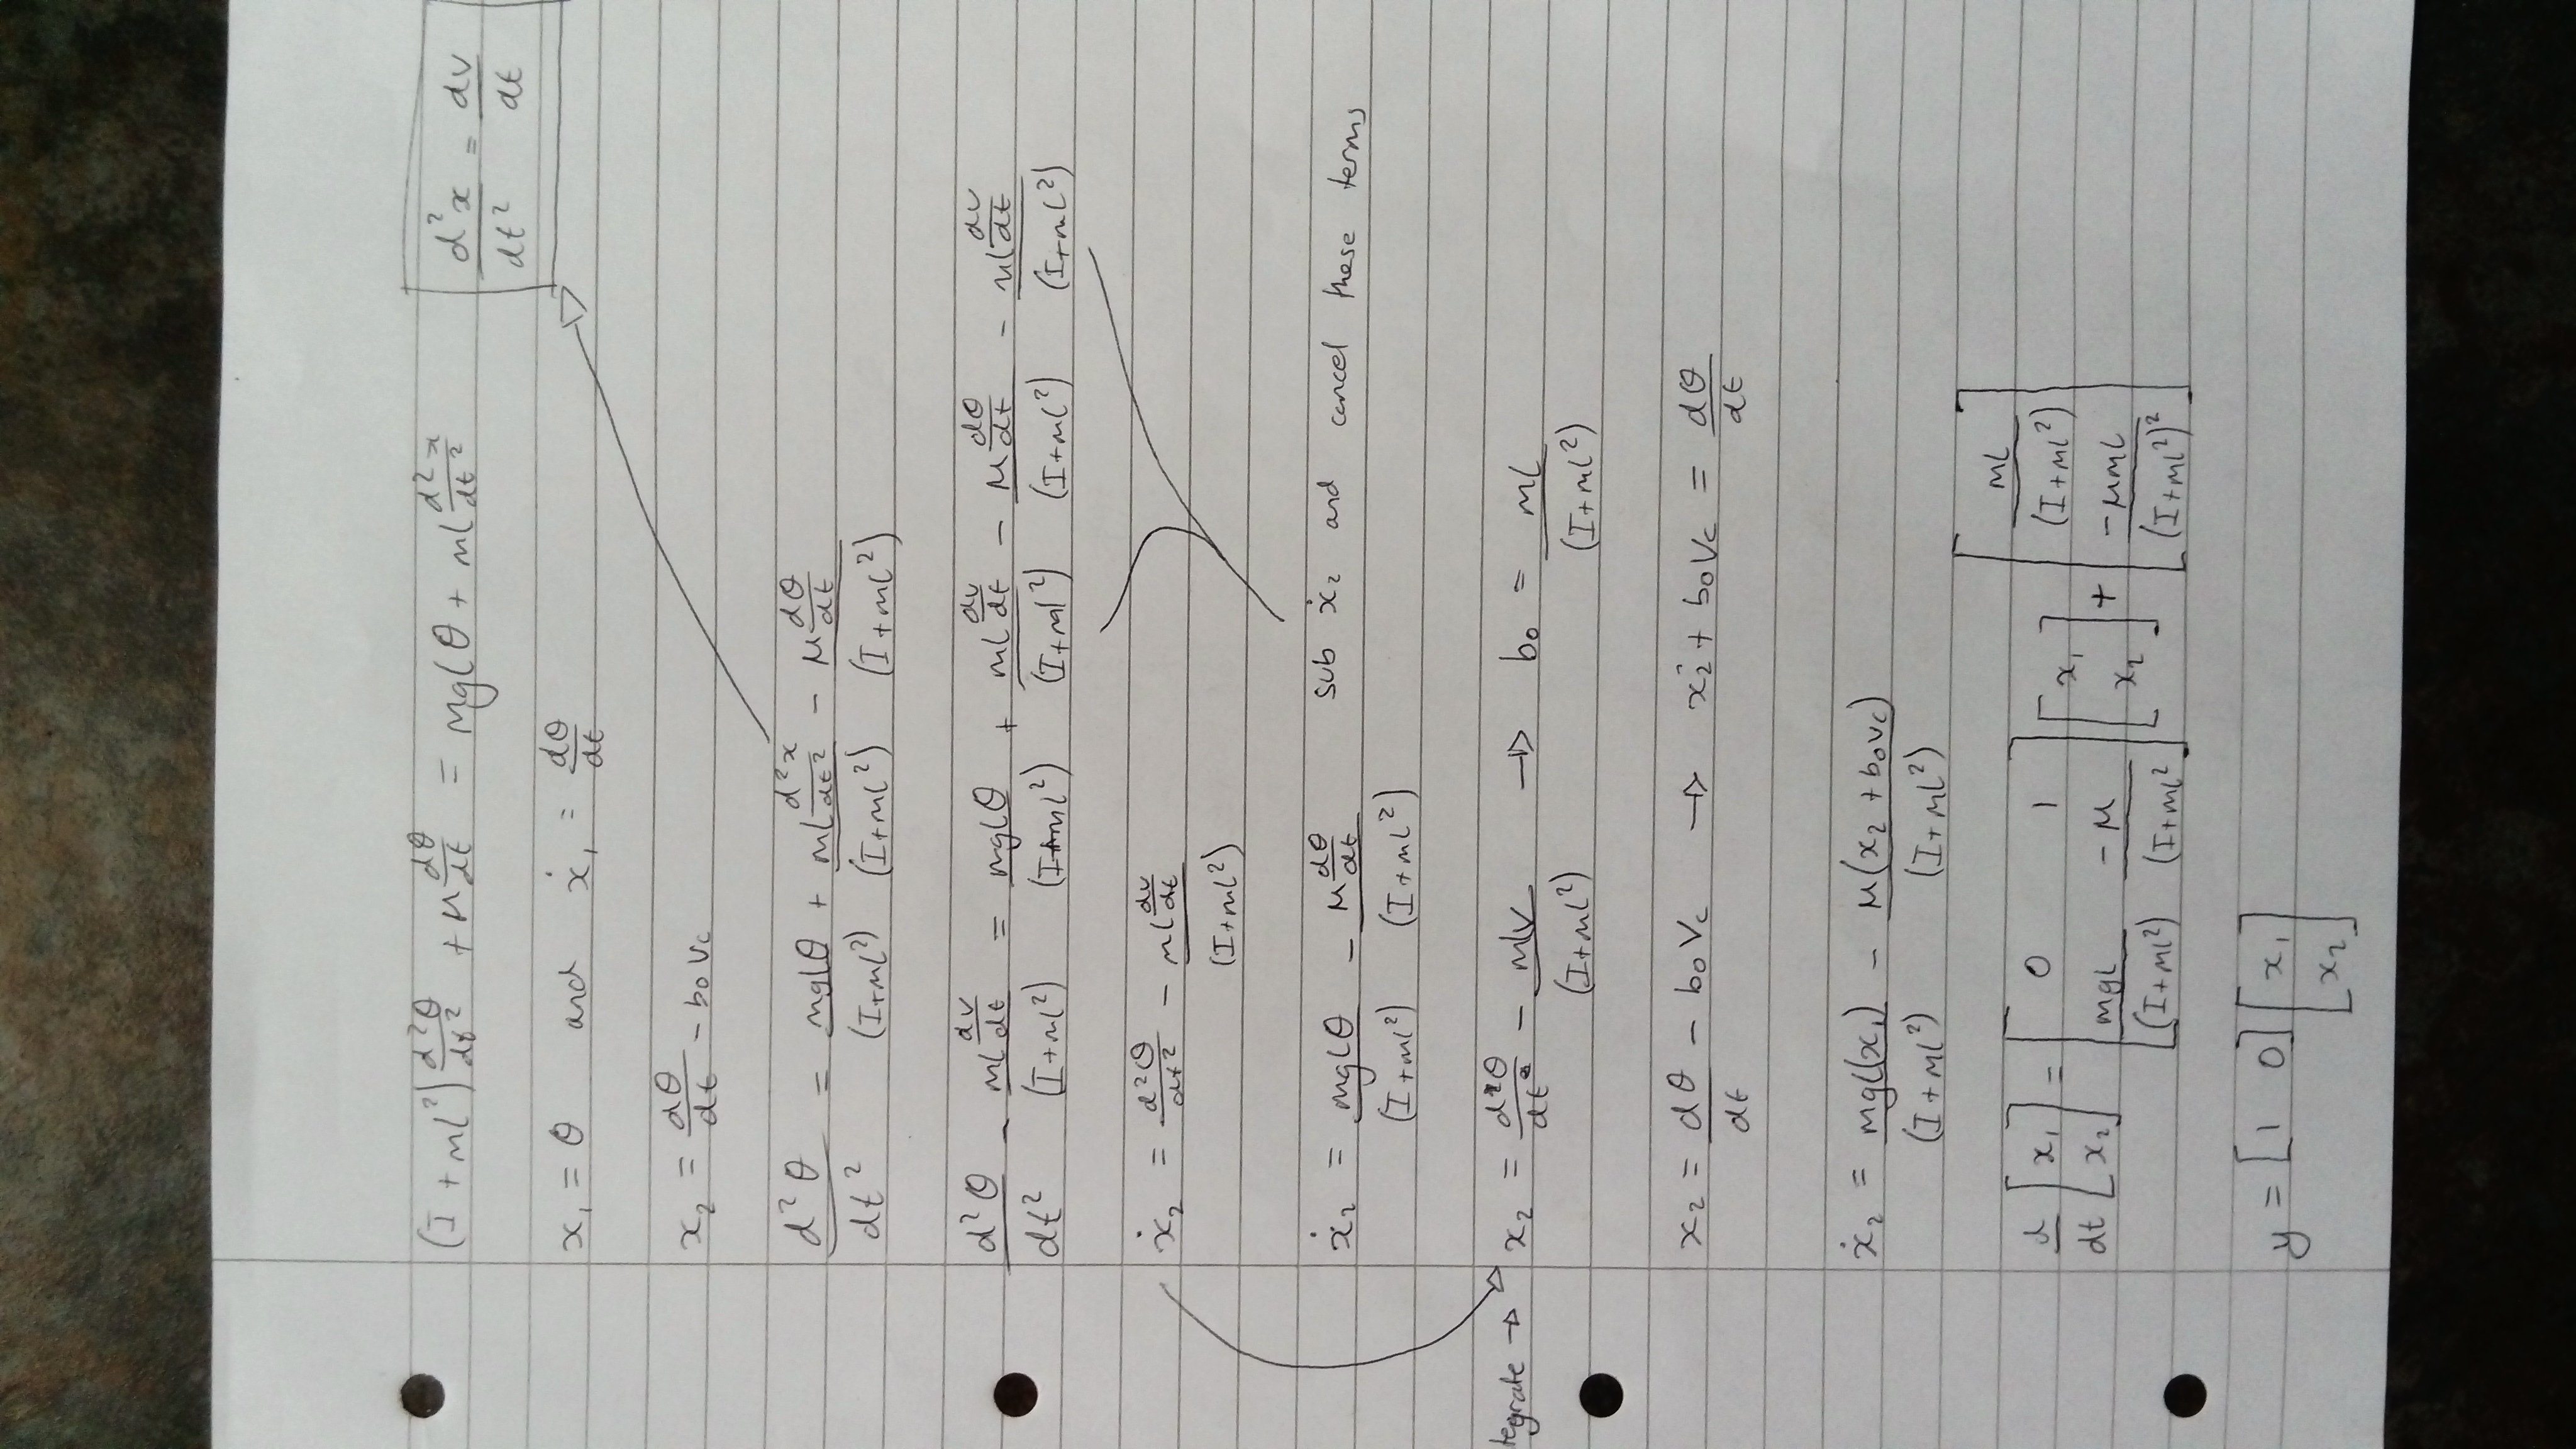 (I + ml²) d²θ/dt² + μ dθ/dt = mglθ + ml d²x/dt²
d²x/dt² = dv/dt
x₁ = θ and ẋ₁ = dθ/dt
x₂ = dθ/dt - b₀Vc
d²θ/dt² = mglθ/(I+ml²) + ml d²x/dt²/(I+ml²) - μ dθ/dt/(I+ml²)
d²θ/dt² - ml dv/dt/(I+ml²) = mglθ/(I+ml²) + ml dv/dt/(I+ml²) - μ dθ/dt/(I+ml²) - ml dv/dt/(I+ml²)
ẋ₂ = d²θ/dt² - ml dv/dt/(I+ml²)
ẋ₂ = mglθ/(I+ml²) - μ dθ/dt/(I+ml²) sub ẋ₂ and cancel these terms
tegrate → x₂ = dθ/dt - mlv/(I+ml²) → b₀ = ml/(I+ml²)
x₂ = dθ/dt - b₀Vc → x₂ + b₀Vc = dθ/dt
ẋ₂ = mgl(x₁)/(I+ml²) - μ(x₂ + b₀Vc)/(I+ml²)
d/dt [x₁ x₂] = [0 1 mgl/(I+ml²) -μ/(I+ml²] [x₁ x₂] + [ml/(I+ml²) -μml/(I+ml²)²]
y = [1 0] [x₁ x₂]